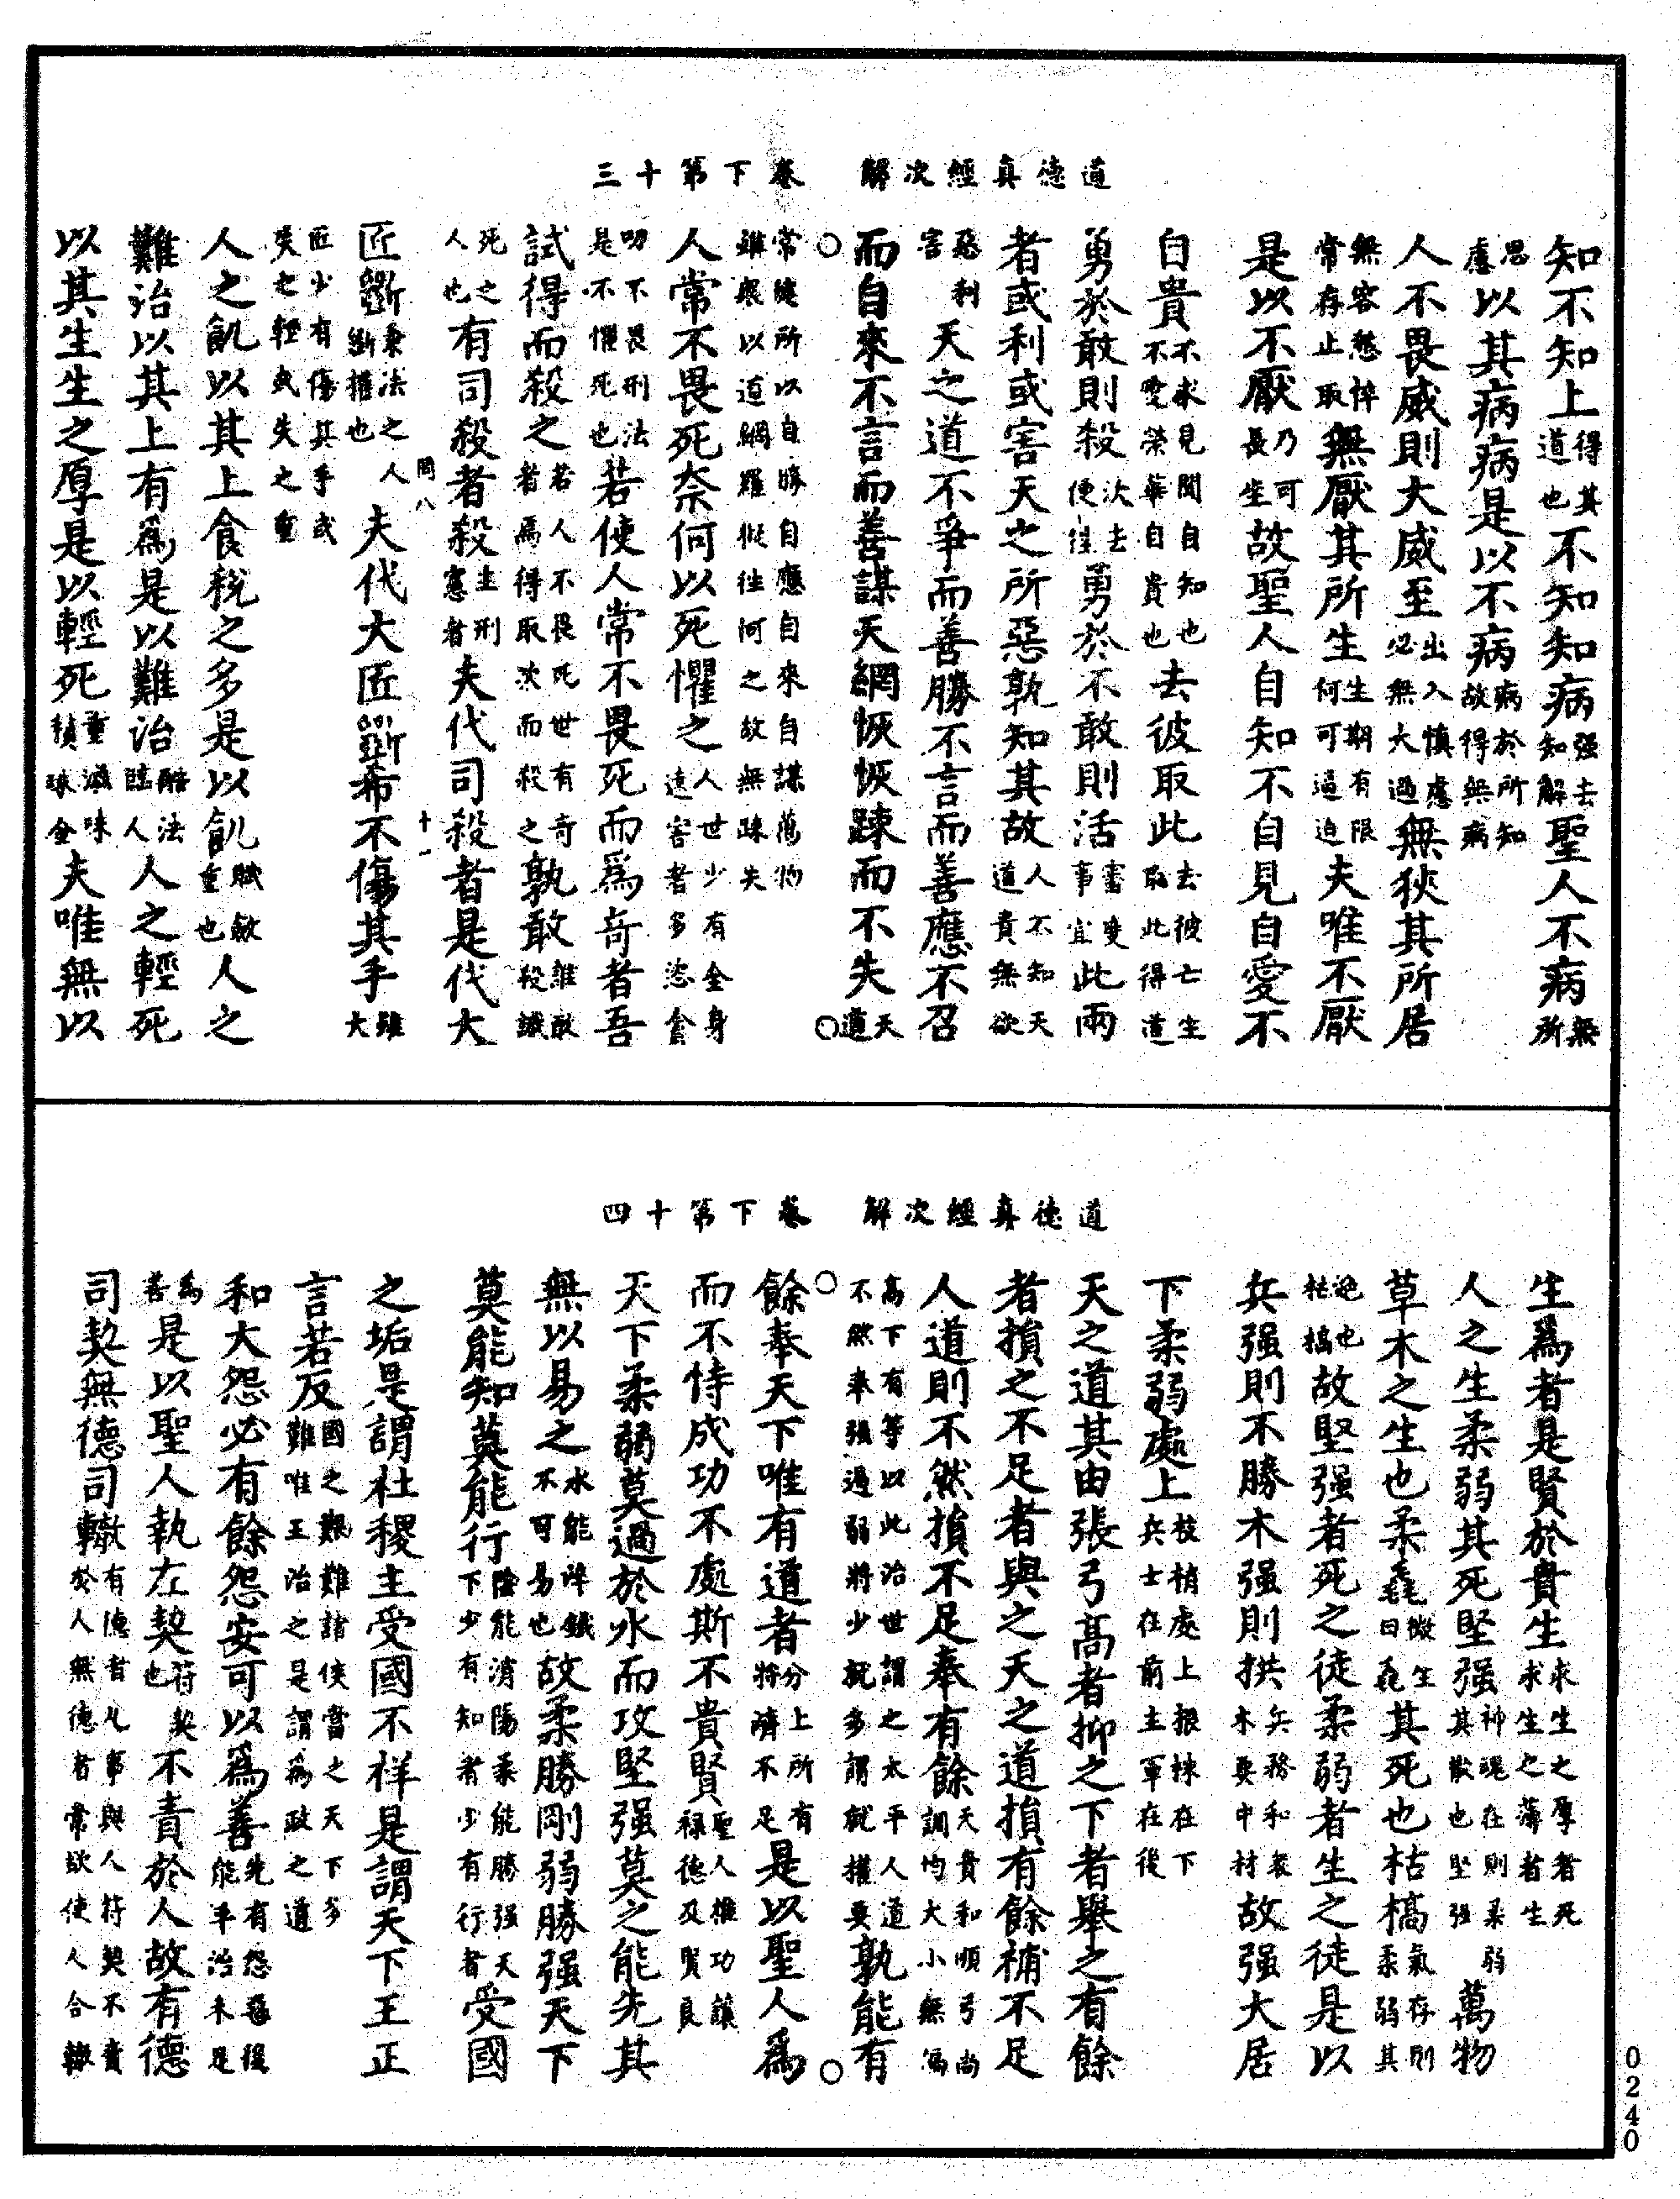 道德真經次解　卷下第十三
知不知上得其道也不知知病强去知解聖人不病無所
思慮以其病病是以不病病於所知故得無病
人不畏威則大威至出入慎慮必無大過無狹其所居
無容愁悴常存止取無厭其所生生期有限何可逼迫夫唯不厭
是以不厭乃可長生故聖人自知不自見自愛不
自貴不求見聞自知也不愛榮華自貴也去彼取此去彼亡生取此得道
勇於敢則殺決去便往勇於不敢則活審事宜此兩
者或利或害天之所惡孰知其故人不知天道貴無欲
惡利利害天之道不爭而善勝不言而善應不召
而自來不言而善謀天網恢恢踈而不失天道
常所以自勝自應自來自謀萬物雖以道網羅縱往何之故無踈失
人常不畏死奈何以死懼之人世少有全身遠害者多恣貪
叨不畏刑法是不懼死也若使人常不畏死而爲奇者吾
試得而殺之若人不畏死世有奇者爲得取次而殺之孰敢誰敢殺譏
死之人也有司殺者殺主刑憲者夫代司殺者是代大
罔八　十一
匠斲秉法之人斲權也夫代大匠斲希不傷其手雖大
匠少有傷其手或失之輕或失之重
人之飢以其上食稅之多是以飢賦斂重也人之
難治以其上有爲是以難治酷法臨人人之輕死
以其生生之厚是以輕死重滋味積珠金夫唯無以
道德真經次解　卷下第十四
生爲者是賢於貴生求生之厚者死求生之薄者生
人之生柔弱其死堅强神魂在則柔弱其散也堅强萬物
草木之生也柔毳微生曰毳其死也枯槁氣存則柔弱其
絕也枯槁故堅强者死之徒柔弱者生之徒是以
兵强則不勝木强則拱兵務和衆木要中材故强大居
下柔弱處上枝梢處上根株在下兵士在前主軍在後
天之道其由張弓高者抑之下者舉之有餘
者損之不足者與之天之道損有餘補不足
人道則不然損不足奉有餘天貴和順弓尚調均大小無偏
高下有等以此治世謂之太平人道不然奉强過弱將少就多謂就權要孰能有
餘奉天下唯有道者分上所有將濟不足是以聖人爲
而不恃成功不處斯不貴賢聖人推功讓祿德及賢良
天下柔弱莫過於水而攻堅强莫之能先其
無以易之水能降鐵不可易也故柔勝剛弱勝强天下
莫能知莫能行陰能消陽柔能勝强天下少有知者少有行者受國
之垢是謂社稷主受國不祥是謂天下王正
言若反國之艱難諸侯當之天下多難唯王治之是謂爲政之道
和大怨必有餘怨安可以爲善先有怨惡後能平治未是
爲善是以聖人執左契符契也不責於人故有德
司契無德司轍有德者凡事與人符契不責於人無德者常欲使人合轍
0240